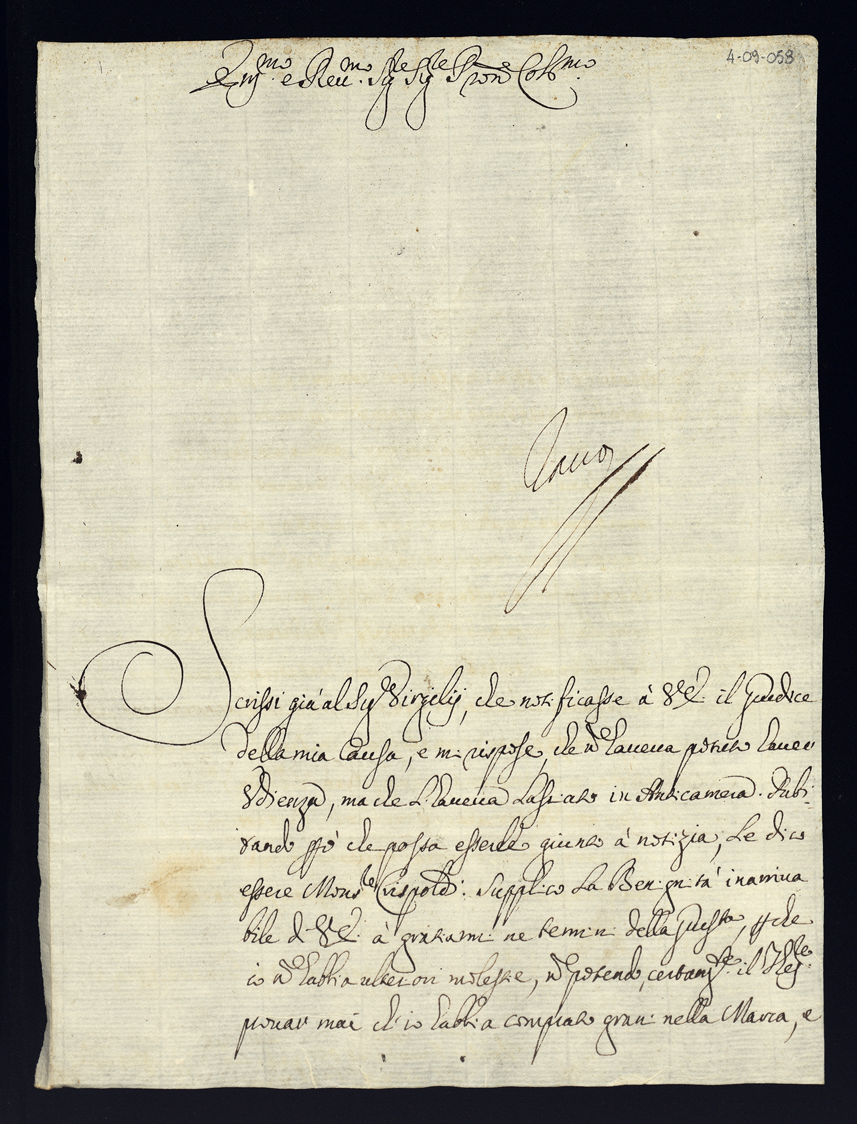 4-09-058
Em.mo e Reu.mo Sig.re Sig.re Pron.e Col.mo
Scrissi già al Sig.r Virgilij, che notificasse à V.E. il Giudice
della mia Causa, e mi rispose, che nõ haueua potuto hauer
Vdienza, ma che l'haueua lasciato in Anticamera. Dubi-
tando però che possa esserle giunto à notizia, le dico
essere Mons.re Crispoldi. Supplico la Benignità inarriua
bile di V.E. à gratiarmi ne termini della Giustª, perche
io nõ habbia ulteriori molestie, nõ potendo certam.te il
prouar mai ch'io habbia comprato grani nella Marca, e